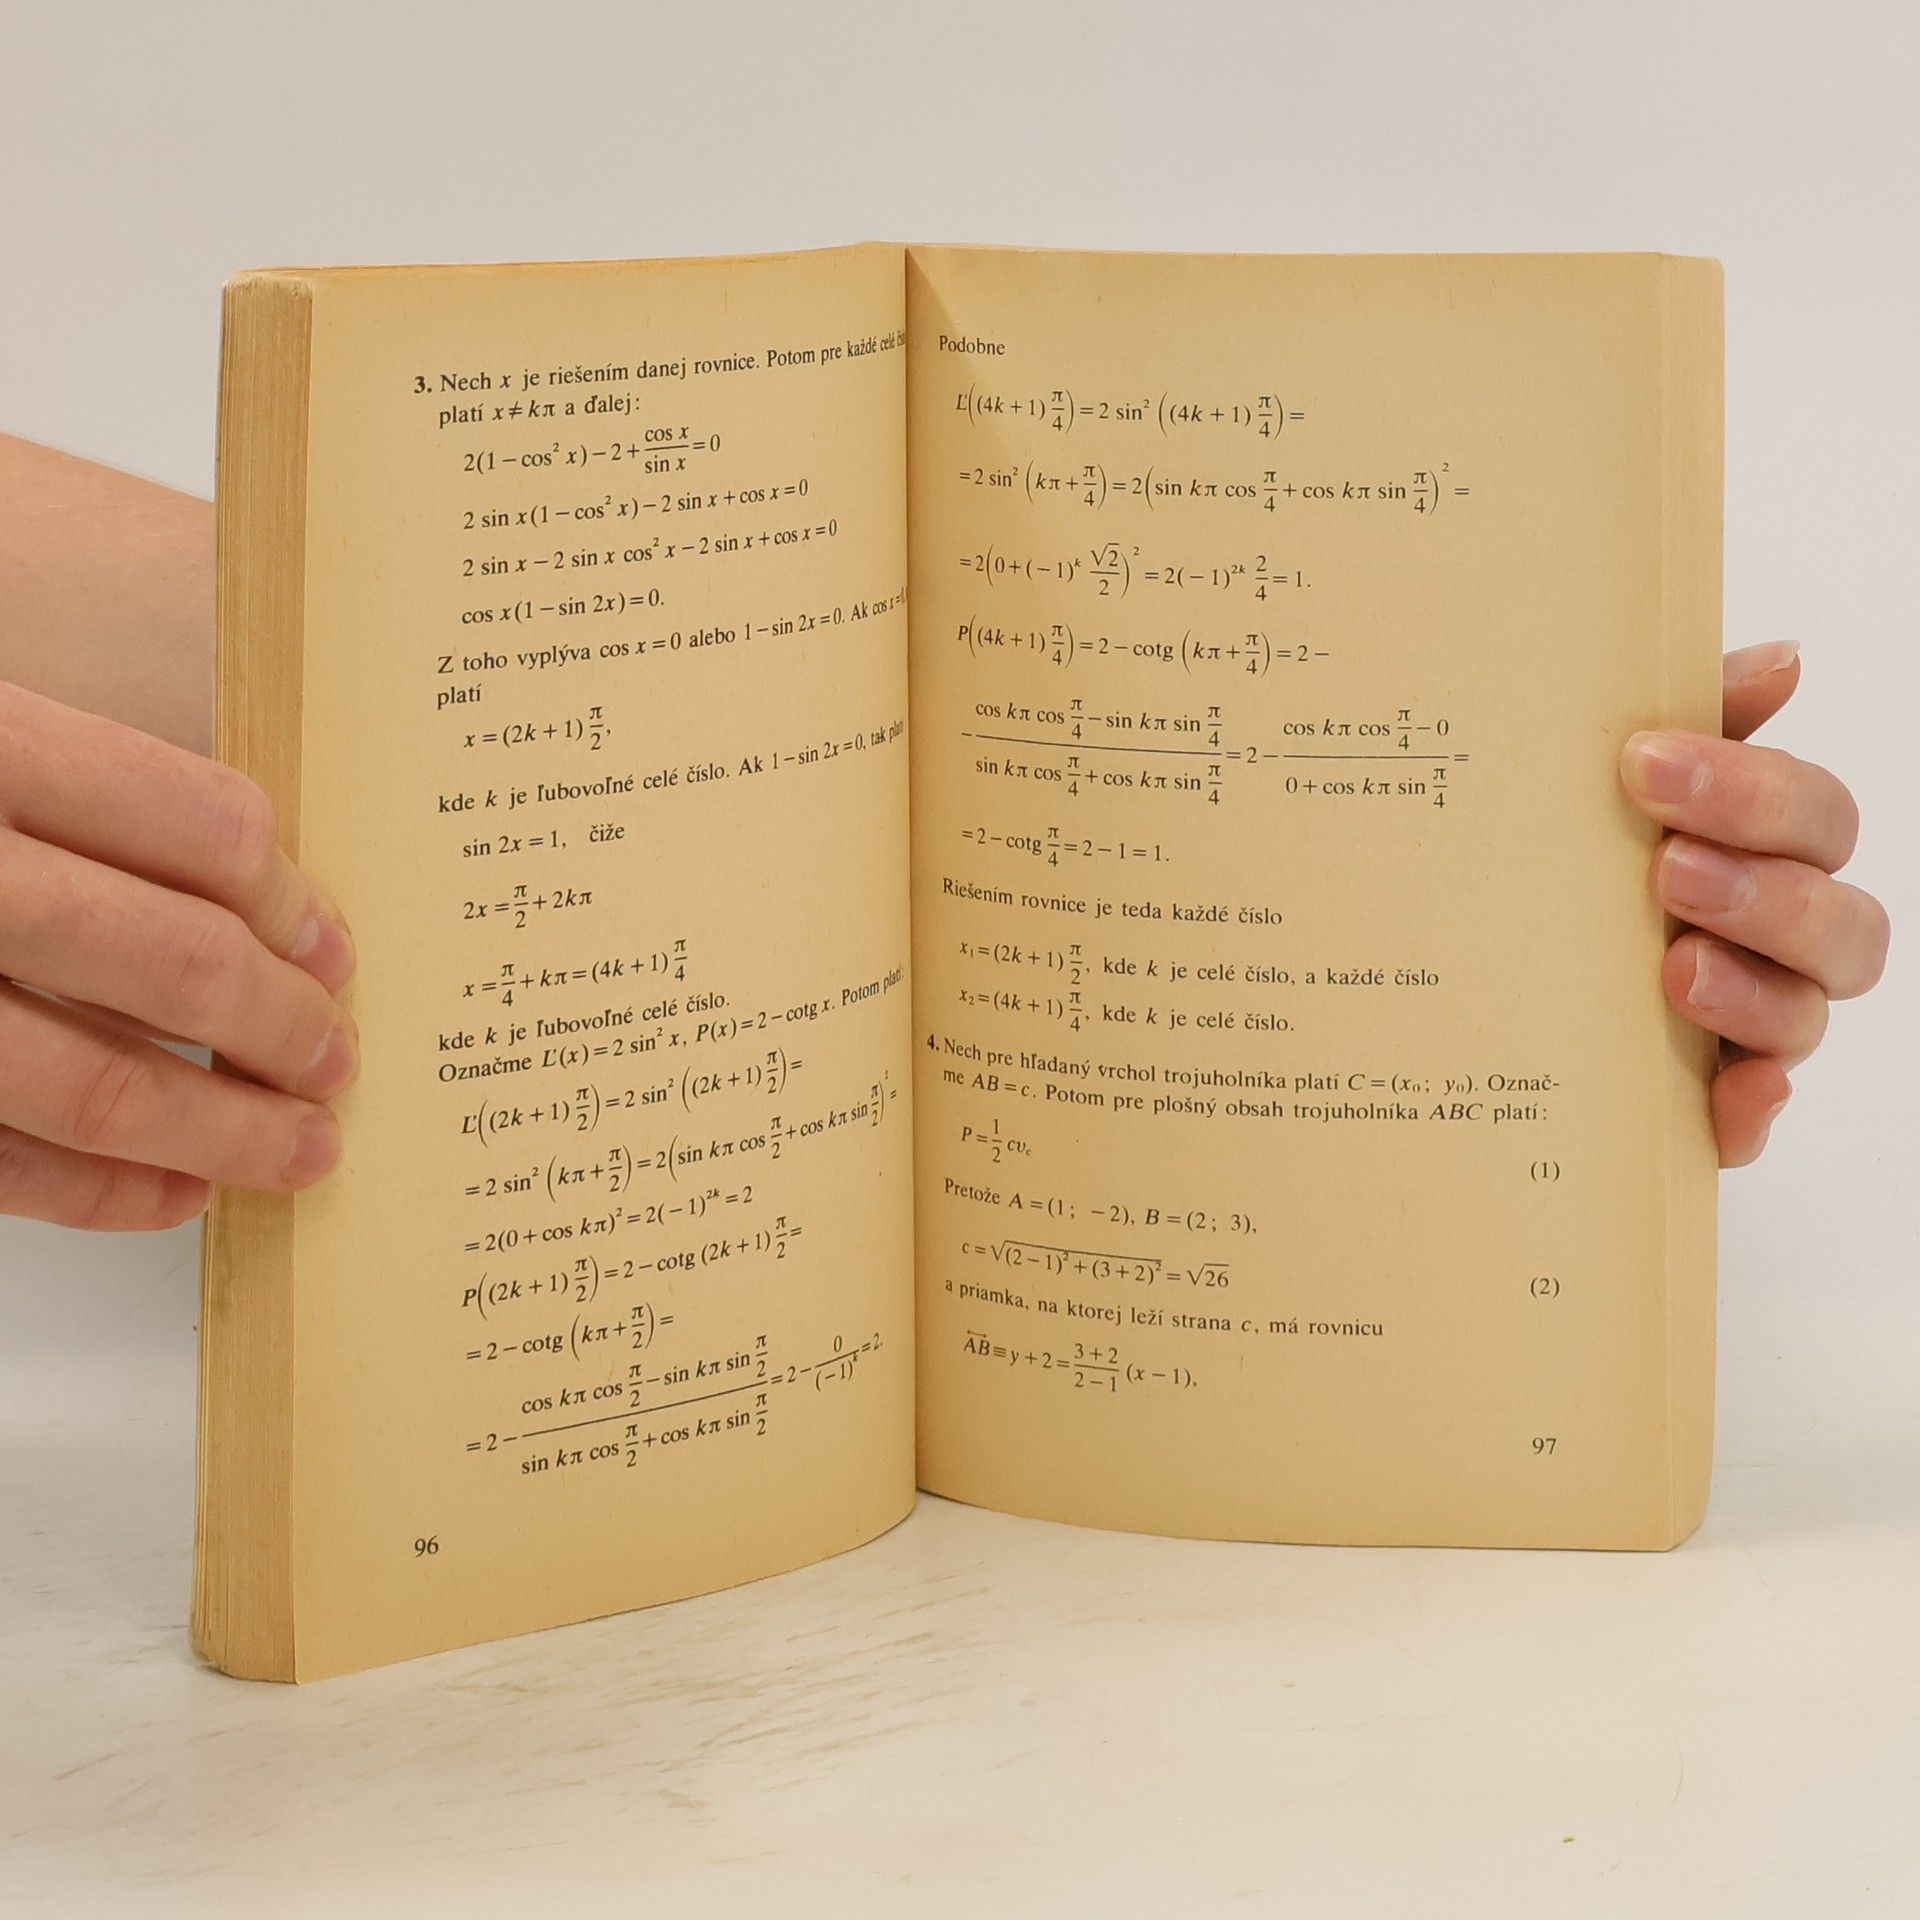 3. Nech x je riešením danej rovnice. Potom pre každé celé
platí x ≠ kπ a ďalej:
2(1 − cos² x) − 2 + cos x / sin x = 0
2 sin x(1 − cos² x) − 2 sin x + cos x = 0
2 sin x − 2 sin x cos² x − 2 sin x + cos x = 0
cos x(1 − sin 2x) = 0.
Z toho vyplýva cos x = 0 alebo 1 − sin 2x = 0. Ak cos x = 0
platí
x = (2k + 1) π/2,
kde k je ľubovoľné celé číslo. Ak 1 − sin 2x = 0, tak
sin 2x = 1, čiže
2x = π/2 + 2kπ
x = π/4 + kπ = (4k + 1) π/4
kde k je ľubovoľné celé číslo.
Označme Ľ(x) = 2 sin² x, P(x) = 2 − cotg x. Potom platí:
Ľ((2k + 1) π/2) = 2 sin² ((2k + 1) π/2) =
= 2 sin² (kπ + π/2) = 2(sin kπ cos π/2 + cos kπ sin π/2)² =
= 2(0 + cos kπ)² = 2(−1)²ᵏ = 2
P((2k + 1) π/2) = 2 − cotg (2k + 1) π/2 =
= 2 − cotg (kπ + π/2) =
= 2 − (cos kπ cos π/2 − sin kπ sin π/2) / (sin kπ cos π/2 + cos kπ sin π/2) = 2 − 0/(−1)ᵏ = 2.
96
Podobne
Ľ((4k + 1) π/4) = 2 sin² ((4k + 1) π/4) =
= 2 sin² (kπ + π/4) = 2(sin kπ cos π/4 + cos kπ sin π/4)² =
= 2(0 + (−1)ᵏ √2/2)² = 2(−1)²ᵏ 2/4 = 1.
P((4k + 1) π/4) = 2 − cotg (kπ + π/4) = 2 −
− (cos kπ cos π/4 − sin kπ sin π/4) / (sin kπ cos π/4 + cos kπ sin π/4) = 2 − (cos kπ cos π/4 − 0) / (0 + cos kπ sin π/4) =
= 2 − cotg π/4 = 2 − 1 = 1.
Riešením rovnice je teda každé číslo
x₁ = (2k + 1) π/2, kde k je celé číslo, a každé číslo
x₂ = (4k + 1) π/4, kde k je celé číslo.
4. Nech pre hľadaný vrchol trojuholníka platí C = (x₀; y₀). Označ-
me AB = c. Potom pre plošný obsah trojuholníka ABC platí:
P = 1/2 cv_c (1)
Pretože A = (1; −2), B = (2; 3),
c = √((2 − 1)² + (3 + 2)²) = √26 (2)
a priamka, na ktorej leží strana c, má rovnicu
↔AB ≡ y + 2 = (3 + 2)/(2 − 1) (x − 1),
97